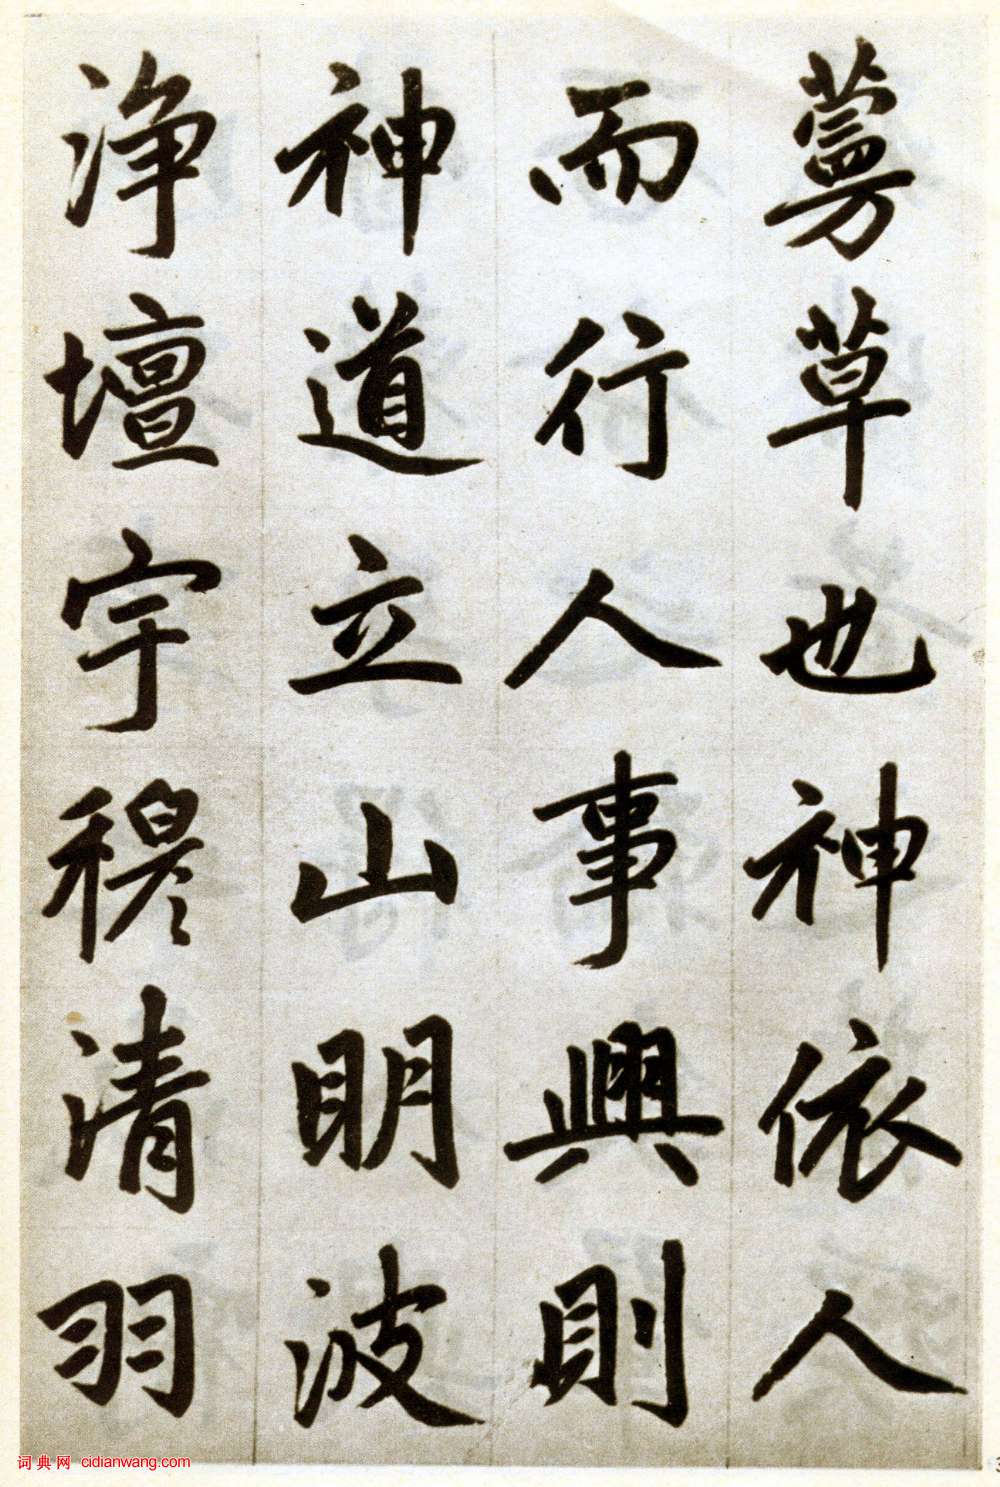 草也神依人
而行人事興則
神道立山明波
浄壇宇穆清羽
词典网 cidianwang.com